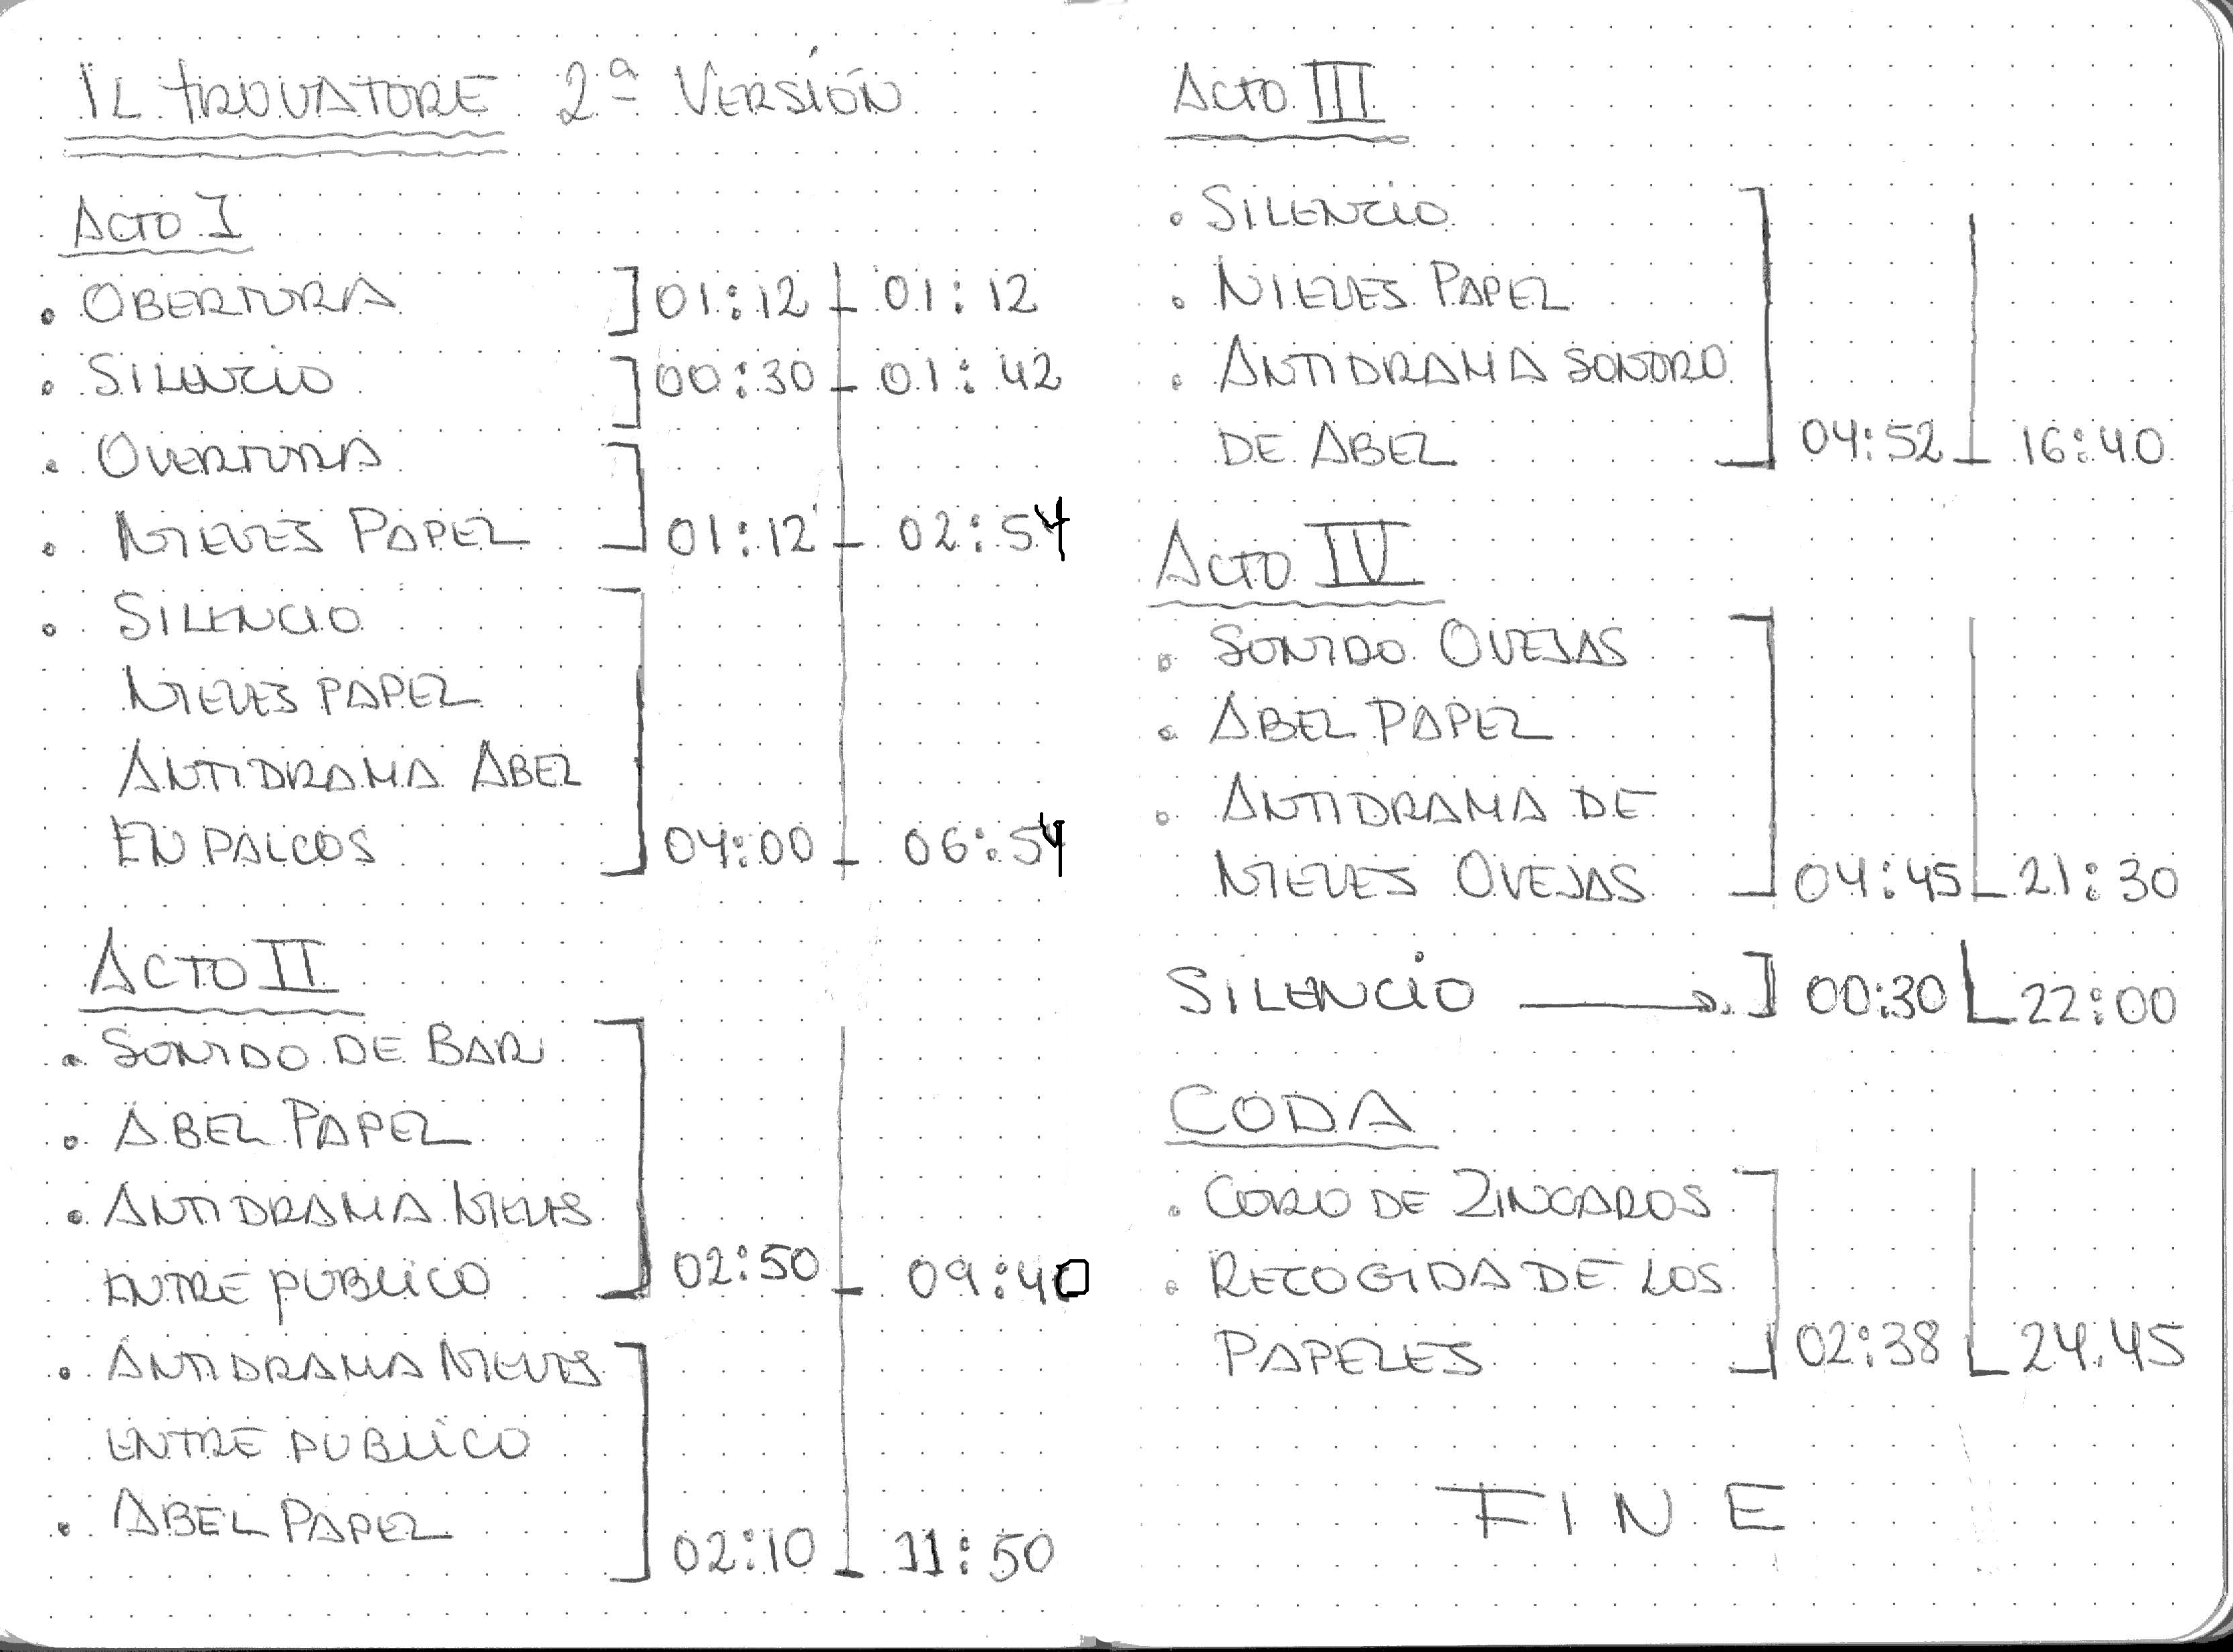 IL TROVATORE 2ª VERSIÓN
ACTO I
• OBERTURA ] 01:12 01:12
• SILENCIO ] 00:30 01:42
• OVERTURA
• NIEVES PAPEL ] 01:12 02:54
• SILENCIO
NIEVES PAPEL
ANTIDRAMA ABEL
EN PALCOS ] 04:00 06:54
ACTO II
• SONIDO DE BAR
• ABEL PAPEL
• ANTIDRAMA NIEVES
ENTRE PUBLICO ] 02:50 09:40
• ANTIDRAMA NIEVES
ENTRE PUBLICO
• ABEL PAPEL ] 02:10 11:50
ACTO III
• SILENCIO
• NIEVES PAPEL
• ANTIDRAMA SONORO
DE ABEL ] 04:52 16:40
ACTO IV
• SONIDO OVEJAS
• ABEL PAPEL
• ANTIDRAMA DE
NIEVES OVEJAS ] 04:45 21:30
SILENCIO → ] 00:30 22:00
CODA
• CORO DE ZINGAROS
• RECOGIDA DE LOS
PAPELES ] 02:38 24.45
FINE